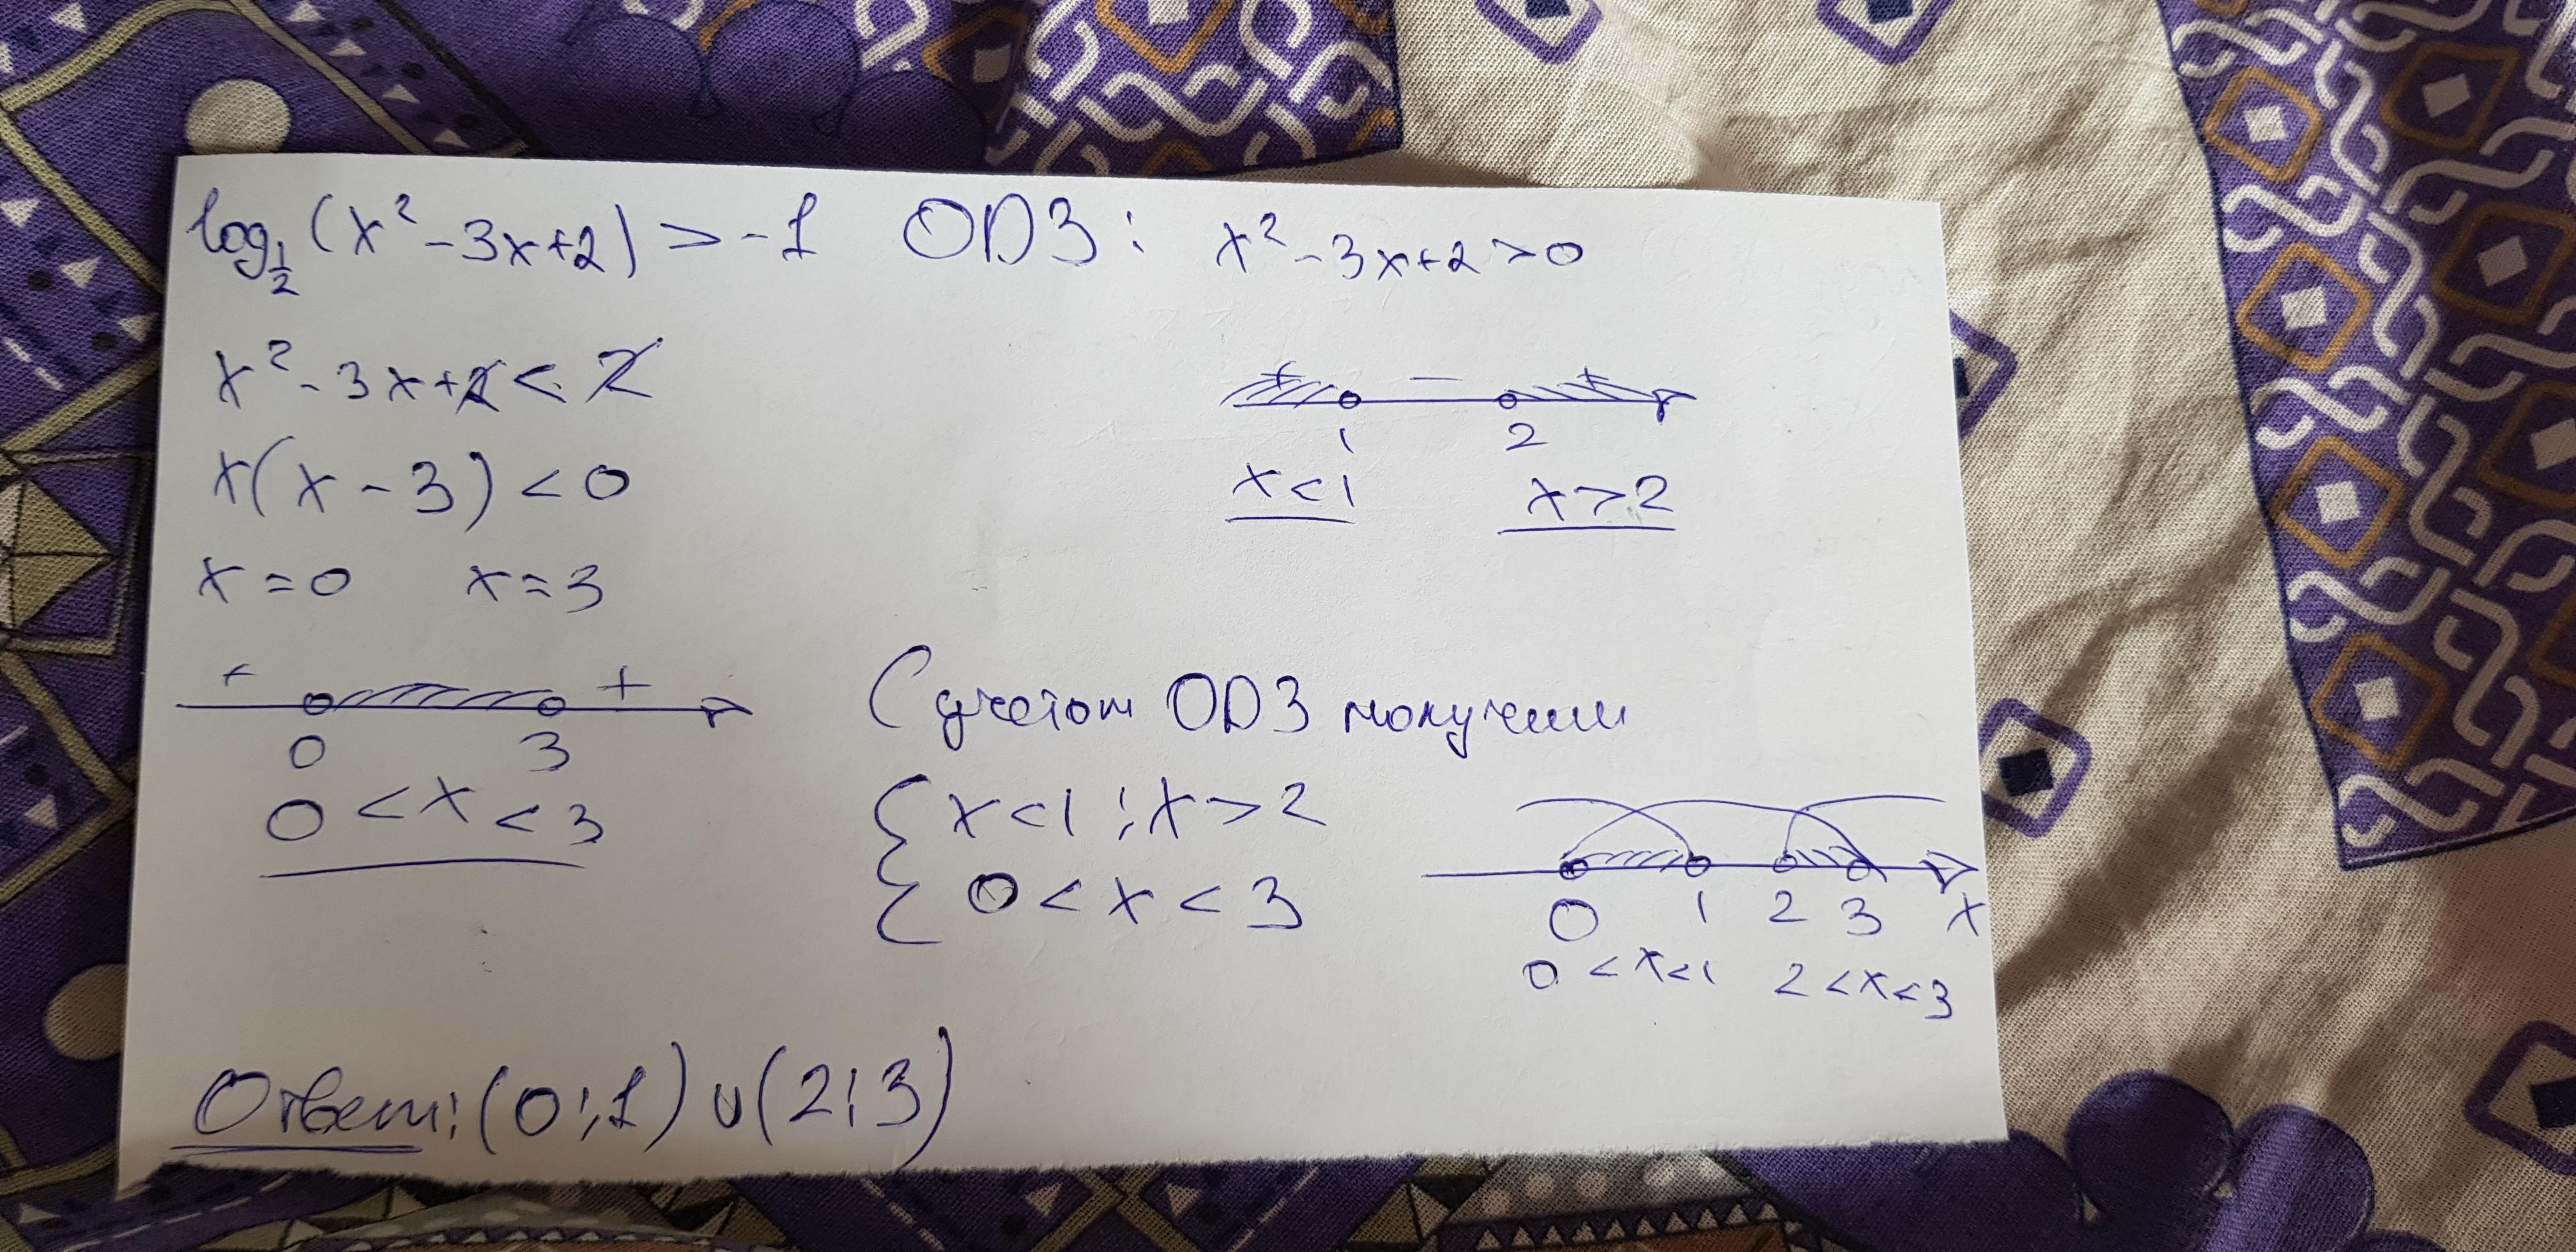 log½(x²-3x+2)>-1 ОДЗ: x²-3x+2>0
x²-3x+2<2
x(x-3)<0
x=0 x=3
+ +
0 3
0<x<3
+ - +
1 2
x<1 x>2
С учетом ОДЗ получим
{x<1; x>2
0<x<3
0 1 2 3 x
0<x<1 2<x<3
Ответ: (0;1)∪(2;3)